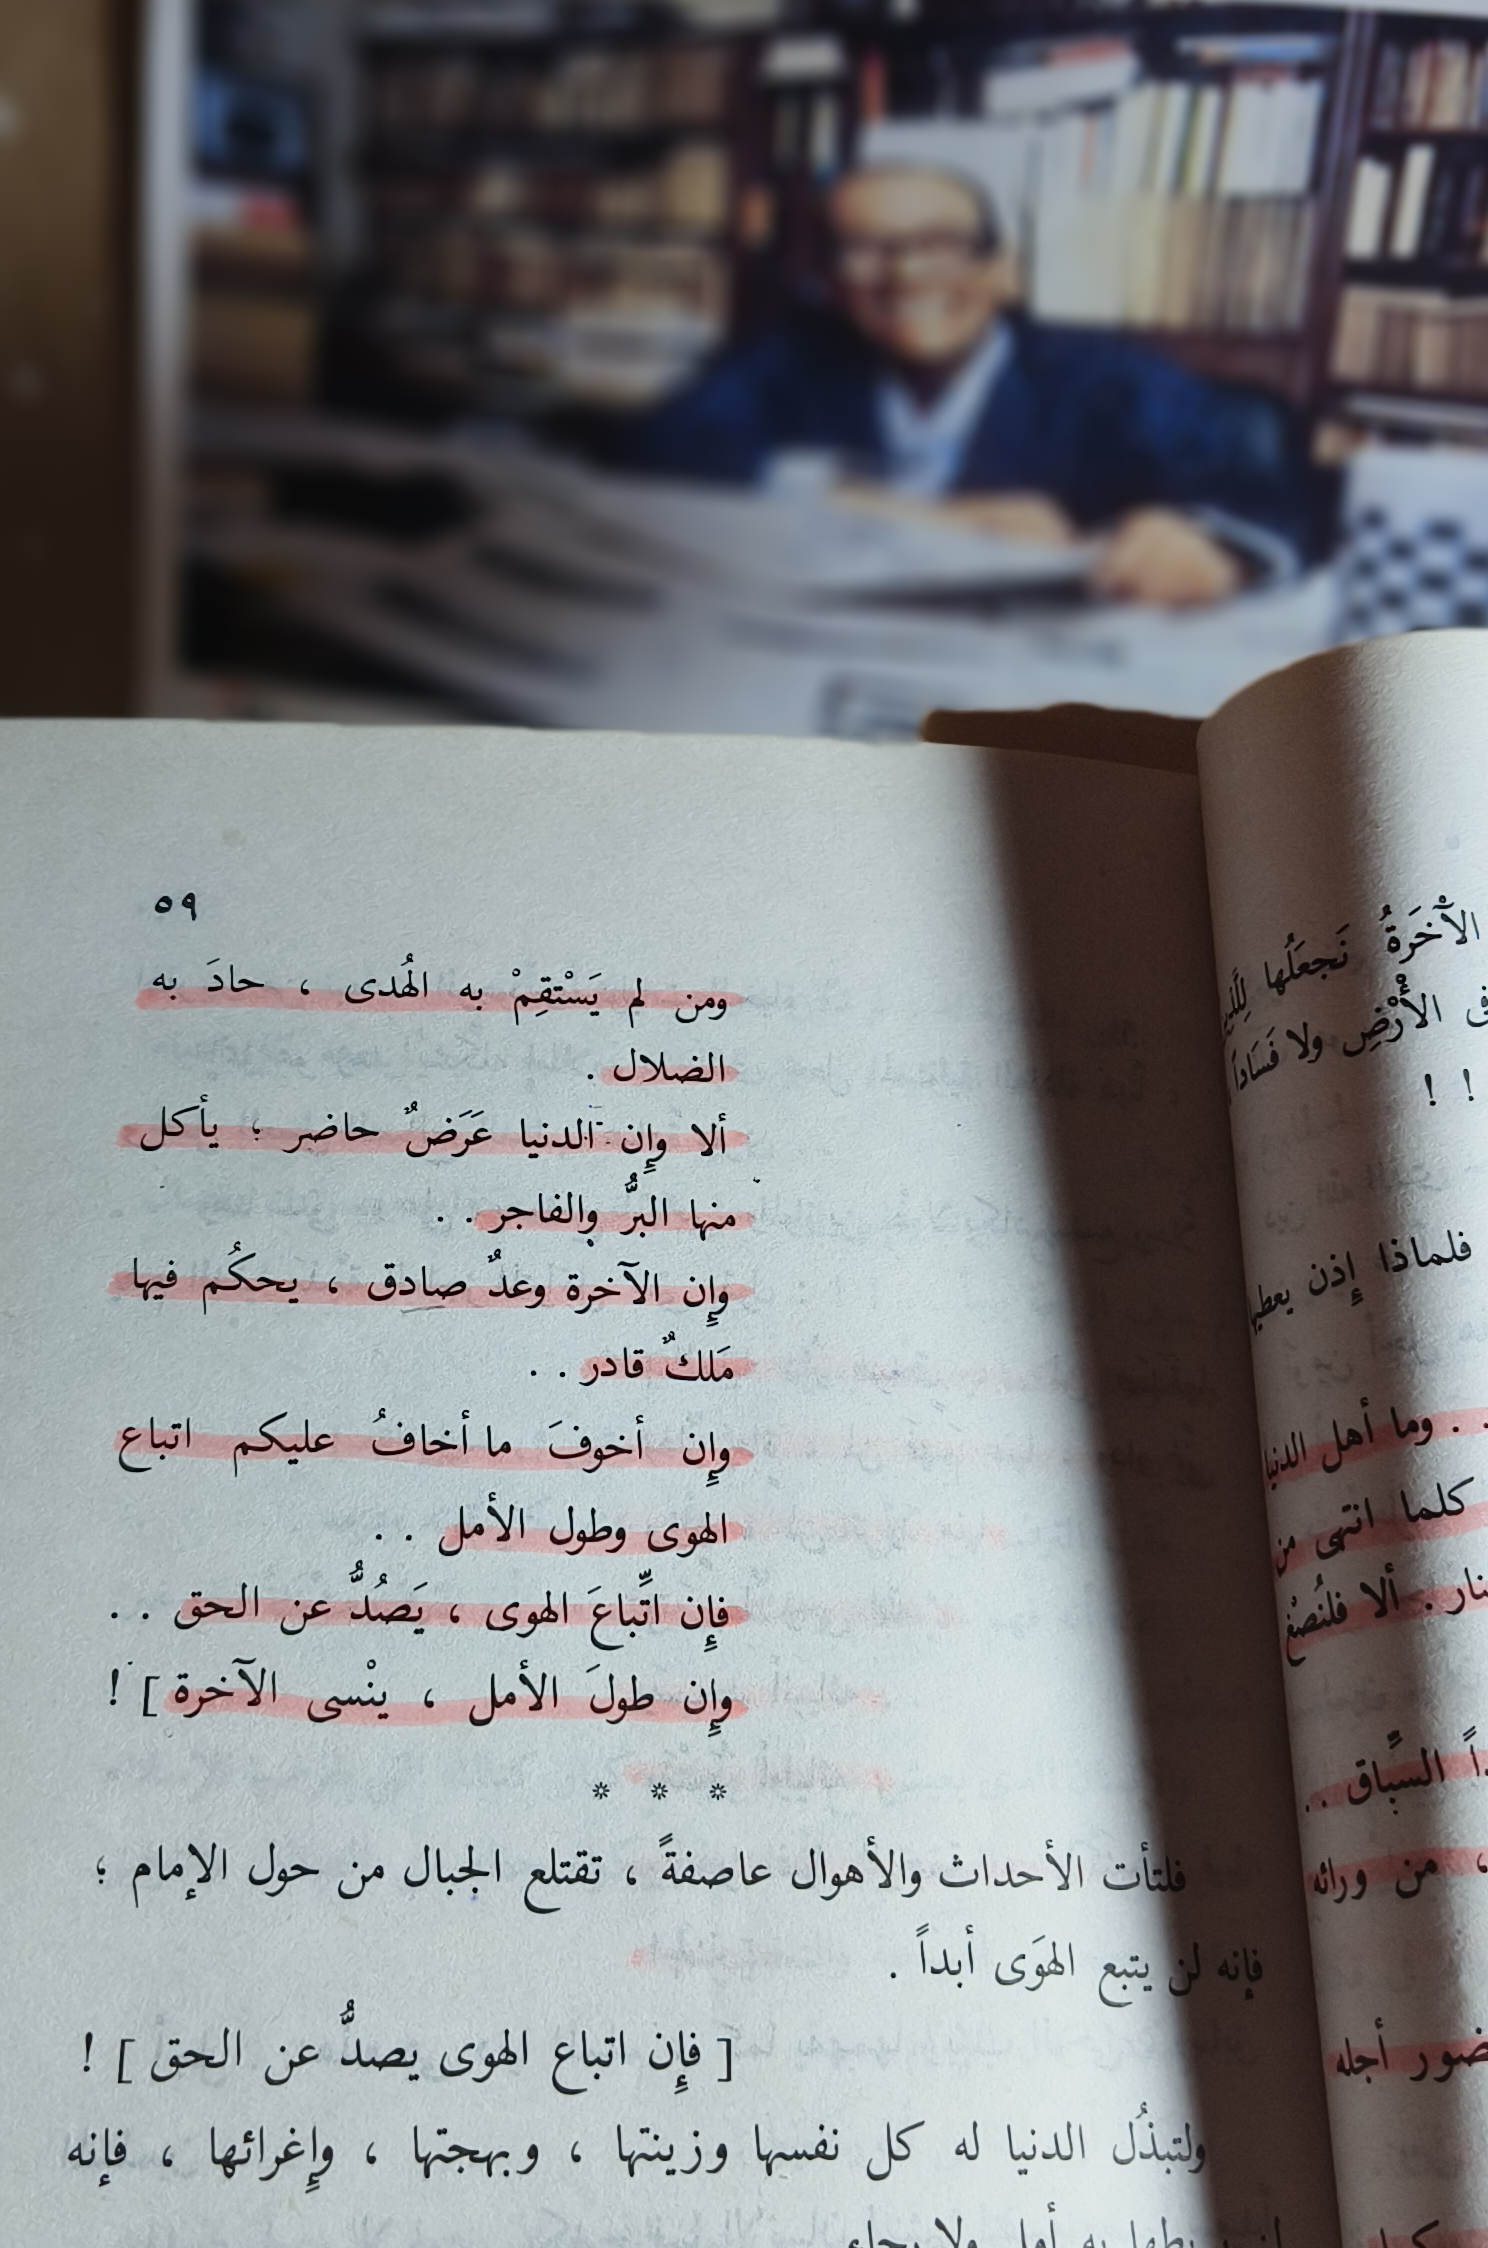 ٥٩
ومن لم يَسْتقِمْ به الهُدى ، حادَ به
الضلال .
ألا وإن الدنيا عَرَضٌ حاضر ؛ يأكل
منها البرُّ والفاجر . .
وإن الآخرة وعدٌ صادق ، يحكُم فيها
مَلكٌ قادر . .
وإن أخوفَ ما أخافُ عليكم اتباع
الهوى وطول الأمل . .
فإن اتِّباعَ الهوى ، يَصُدُّ عن الحق . .
وإن طولَ الأمل ، ينْسى الآخرة ] !
* * *
فلتأت الأحداث والأهوال عاصفةً ، تقتلع الجبال من حول الإمام ؛
فإنه لن يتبع الهوَى أبداً .
[ فإن اتباع الهوى يصدُّ عن الحق ] !
ولتبذُل الدنيا له كل نفسها وزينتها ، وبهجتها ، وإغرائها ، فإنه
الآخَرةُ نَجعَلُها
الأَرْضِ ولا فَسَاداً
! !
فلماذا إذن يعطيها
. . وما أهل الدنيا
كلما انتهى من
. ألا فلنُصْغ
السبَّاق . .
، من ورائه
أجله